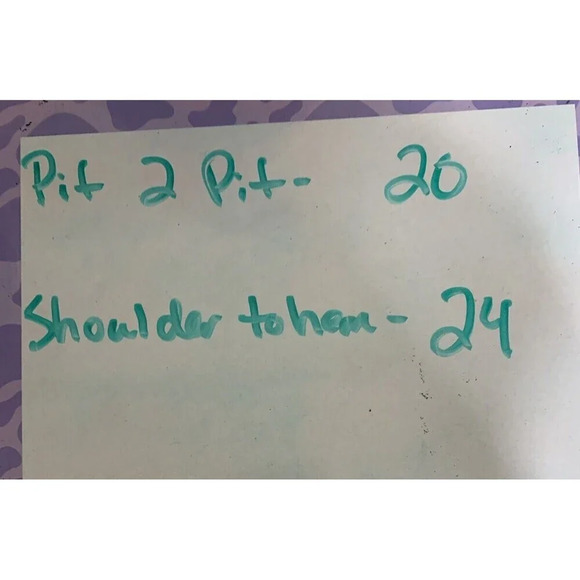 Pit 2 Pit- 20
Shoulder to hem - 24